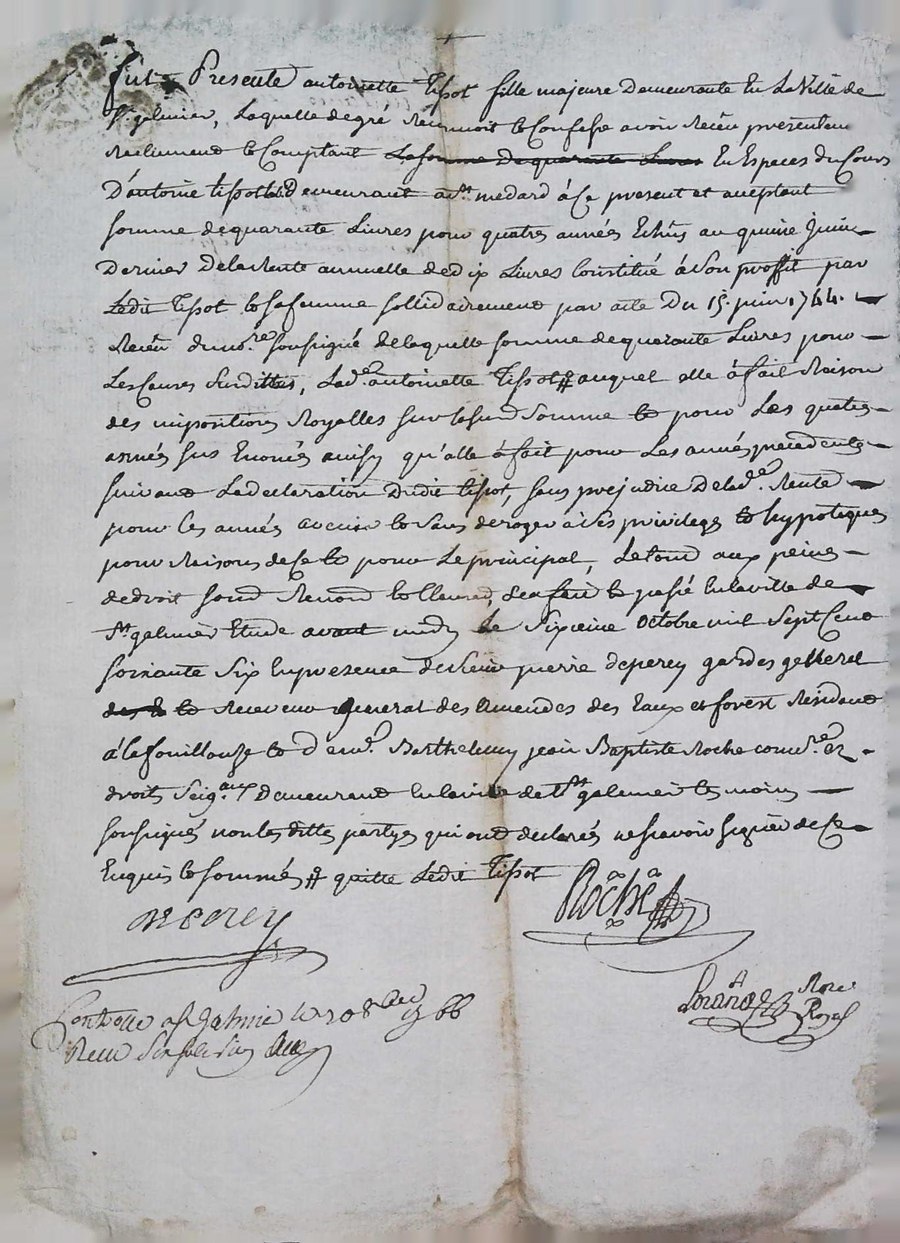 Fut Presente antoinette tissot fille majeure demeurante En La Ville de
St. galmier, Laquelle degré reconnoit et Confesse avoir Receu presentem
reellement et Comptant La somme de quarante Livres En Especes du Cours
D'antoine tissot demeurant a st. medard à Ce present et aceptant
somme de quarante Livres pour quatres années Echus au quinze juin
Dernier De la Rente annuelle de dix Livres Constitué à son proffit par
Ledit tissot et sa femme sollidairement par acte Du 15. juin 1744.
Receu du no.re soussigné de laquelle somme de quarante Livres pour
Les Causes Surdittes, Lad.e antoinette tissot # auquel elle à fait Raison
des impositions Royalles sur laditte somme et pour Les quatres
annés sus Enoncés ainsy qu'elle à fait pour Les annés precedentes
suivant La declaration Dudit tissot, sans prejudice De lad.e Rente
pour les annés avenir et sans deroger à ses privileges et hypoteques
pour Raisons de Ce et pour Le principal, Le tout aux peines
de droit sous Renon. et Clauses, de a fait et passé En la ville de
St. galmier Etude avant midy Le Sixieme Octobre mil Sept Cent
soixante Six En presence de sieur pierre deperey gardes general
et Receveur general des Amendes des Eaux et forest Resident
à la fouillouse et de m.e Barthelemy jean Baptiste Roche com.re Ez
droits Seig.aux Demeurant En la ville de St. galmier temoins
soussignés non les dittes partyes qui ont declarés ne sçavoir signer de Ce
Enquis et sommés # quitte Ledit tissot
deperey
Roche
Not.re
Royal
Controllé a St Galmier le 10 8bre 1766
Receu